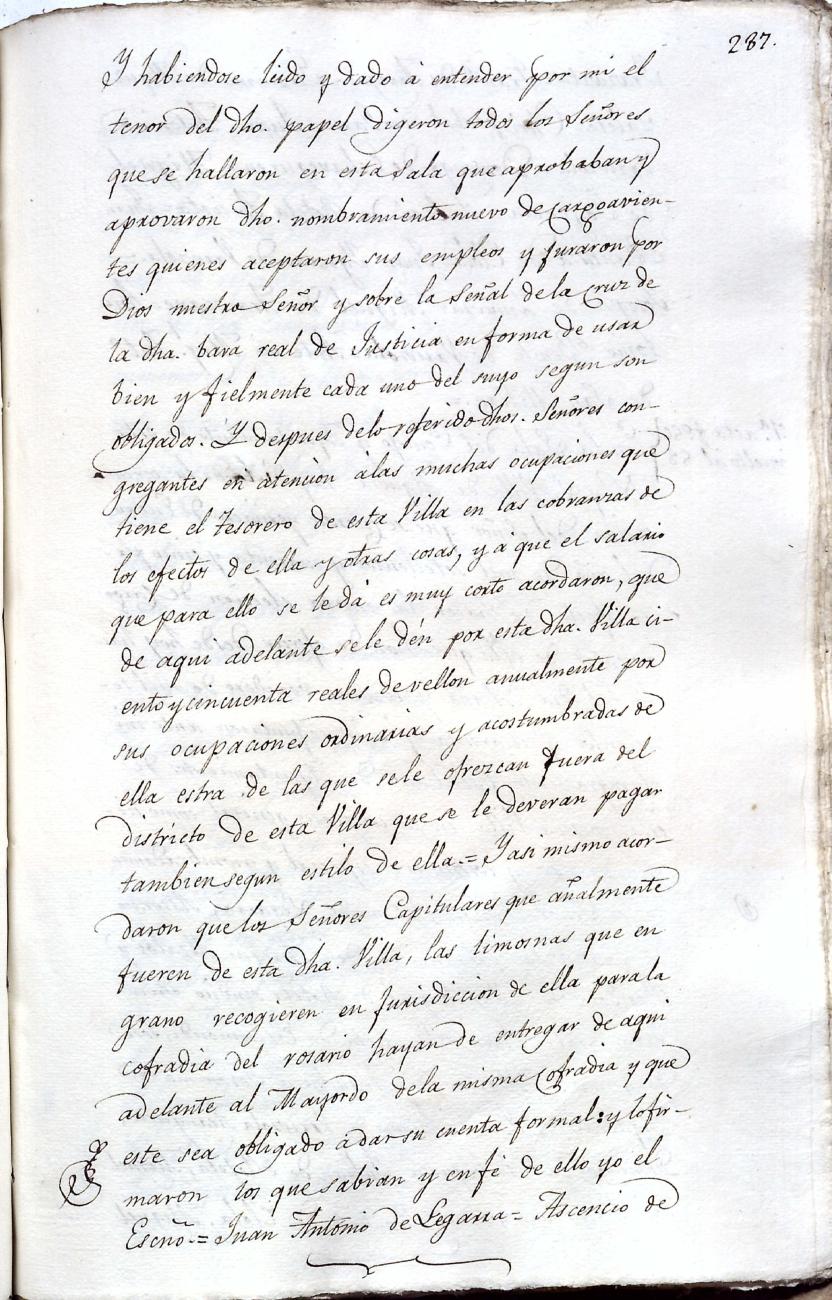 287.
Y habiendose leido y dado à entender por mi el
tenor del dho. papel digeron todos los Señores
que se hallaron en esta sala que aprobaban y
aprovaron dho. nombramiento nuevo de cargoavien-
tes quienes aceptaron sus empleos y juraron por
Dios nuestro Señor y sobre la Señal de la Cruz de
la dha. bara real de Justicia en forma de usar
bien y fielmente cada uno del suyo segun son
obligados. Y despues de lo referido dhos. Señores con-
gregantes en atencion à las muchas ocupaciones que
tiene el tesorero de esta Villa en las cobranzas de
los efectos de ella y otras cosas, y à que el salario
que para ello se le dà es muy corto acordaron, que
de aqui adelante se le dén por esta dha. Villa ci-
ento y cincuenta reales de vellon anualmente por
sus ocupaciones ordinarias y acostumbradas de
ella estra de las que se le ofrezcan fuera del
districto de esta Villa que se le deveran pagar
tambien segun estilo de ella.= Y asi mismo acor-
daron que los Señores Capitulares que añalmente
fueren de esta dha. Villa, las limosnas que en
grano recogieren en Jurisdiccion de ella para la
cofradia del rosario hayan de entregar de aqui
adelante al Mayordo de la misma Cofradia y que
este sea obligado à dar su cuenta formal: y lo fir-
maron los que sabian y en fé de ello yo el
Escño.= Juan Antonio de Legarra= Ascencio de